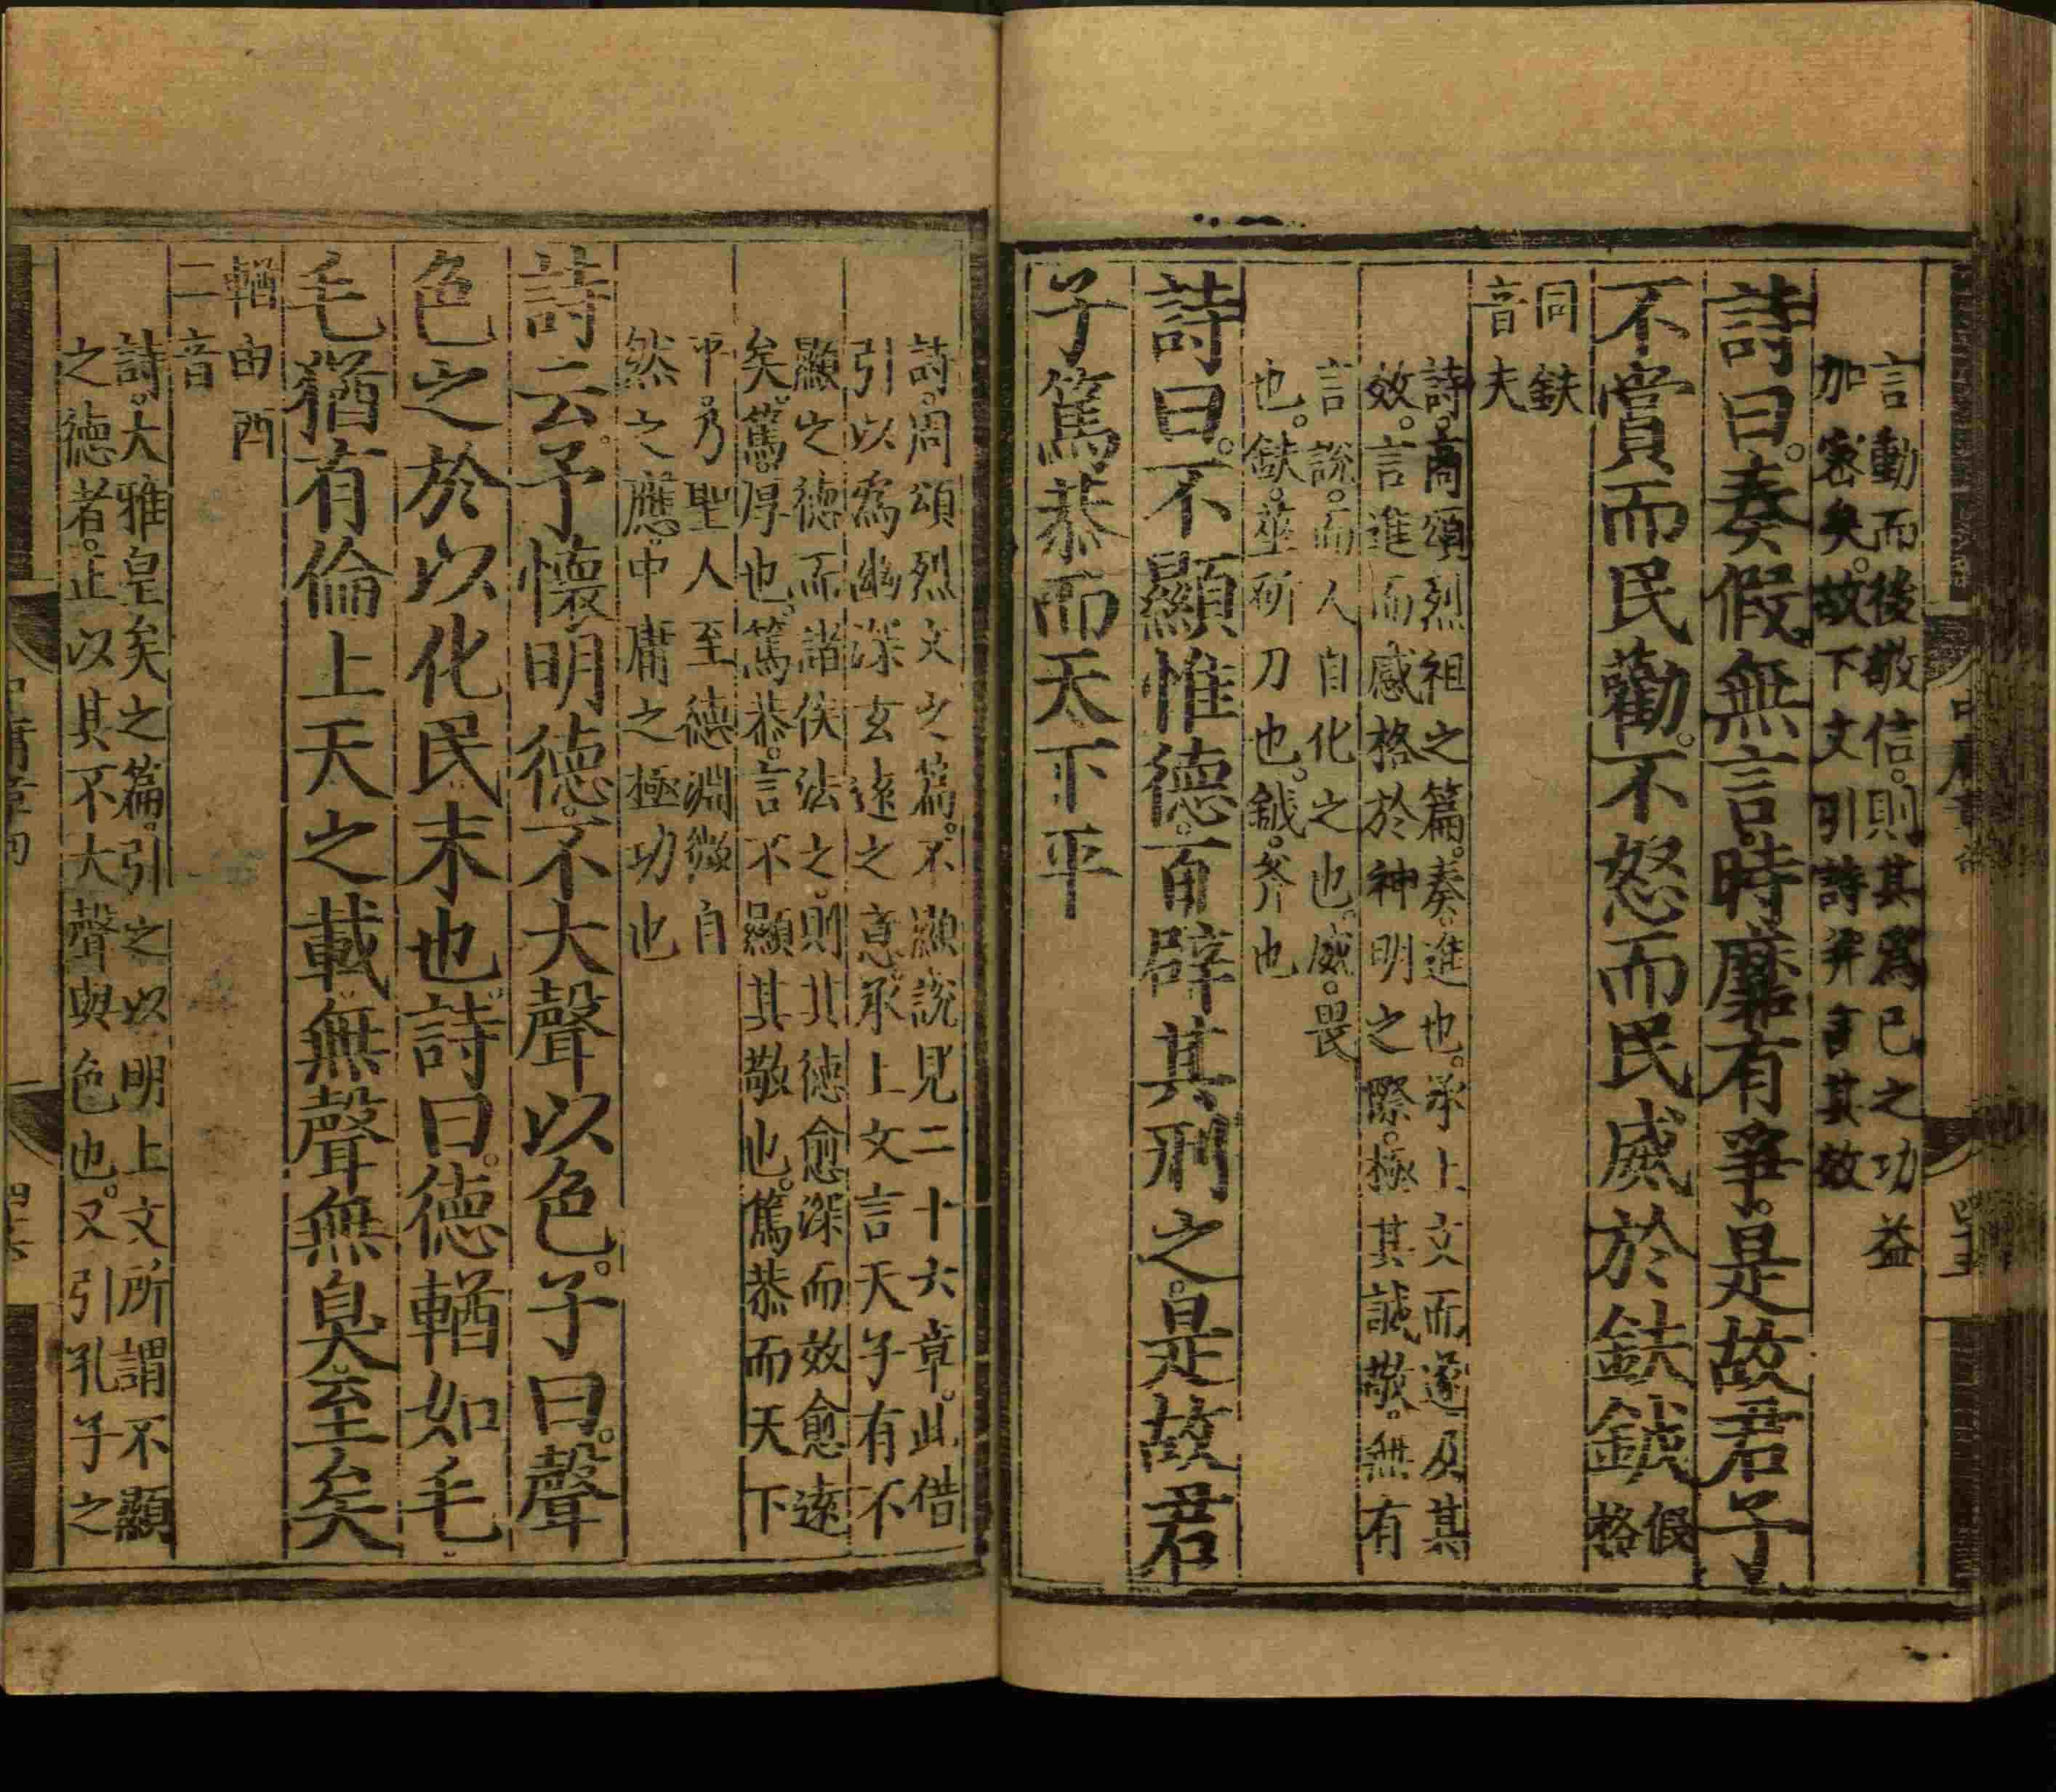 中庸章句
四十五
言動而後敬信。則其爲已之功益
加密矣。故下文引詩并言其效
詩曰。奏假無言。時靡有爭。是故君子
不賞而民勸。不怒而民威於鈇鉞假
格
同鈇
音夫
詩。商頌烈祖之篇。奏。進也。承上文而遂及其
效。言進而感格於神明之際。極其誠敬。無有
言說。而人自化之也。威。畏
也。鈇。莝斫刀也。鉞。斧也
詩曰。不顯惟德。百辟其刑之。是故君
子篤恭而天下平
詩。周頌烈文之篇。不顯說見二十六章。此借
引以爲幽深玄遠之意。承上文言天子有不
顯之德而諸侯法之。則其德愈深而效愈遠
矣。篤。厚也。篤恭。言不顯其敬也。篤恭而天下
平。乃聖人至德淵微自
然之應。中庸之極功也
詩云。予懷明德。不大聲以色。子曰。聲
色之於以化民末也。詩曰。德輶如毛
毛猶有倫上天之載。無聲無臭。至矣
輶由酉
二音
詩。大雅皇矣之篇。引之以明上文所謂不顯
之德者。正以其不大聲與色也。又引孔子之
中庸章句
四十六